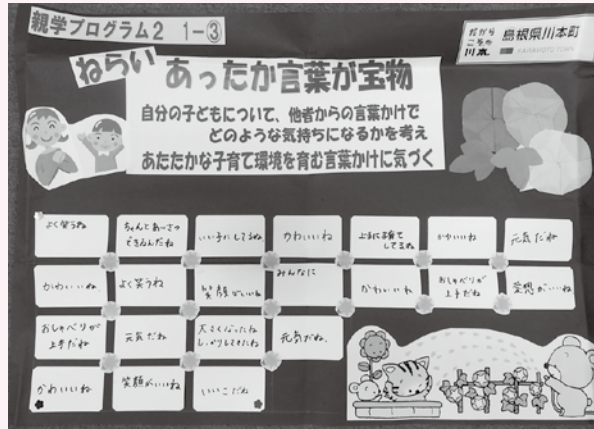 親学プログラム2 1-③
だから
こその
川本。
島根県川本町
KAWAMOTO TOWN
ねらい
あったか言葉が宝物
自分の子どもについて、他者からの言葉かけで
どのような気持ちになるかを考え
あたたかな子育て環境を育む言葉かけに気づく
よく笑うね
ちゃんとあいさつ
できるんだね
いい子にしてるね
かわいいね
上手に子育て
してるね
かわいいね
元気だね
かわいいね
よく笑うね
笑顔がいいね
みんなに
かわいいね
おしゃべりが
上手だね
愛想がいいね
おしゃべりが
上手だね
元気だね
大きくなったね
しっかりしてきたね
元気だね、
かわいいね
笑顔がいいね
いいこだね